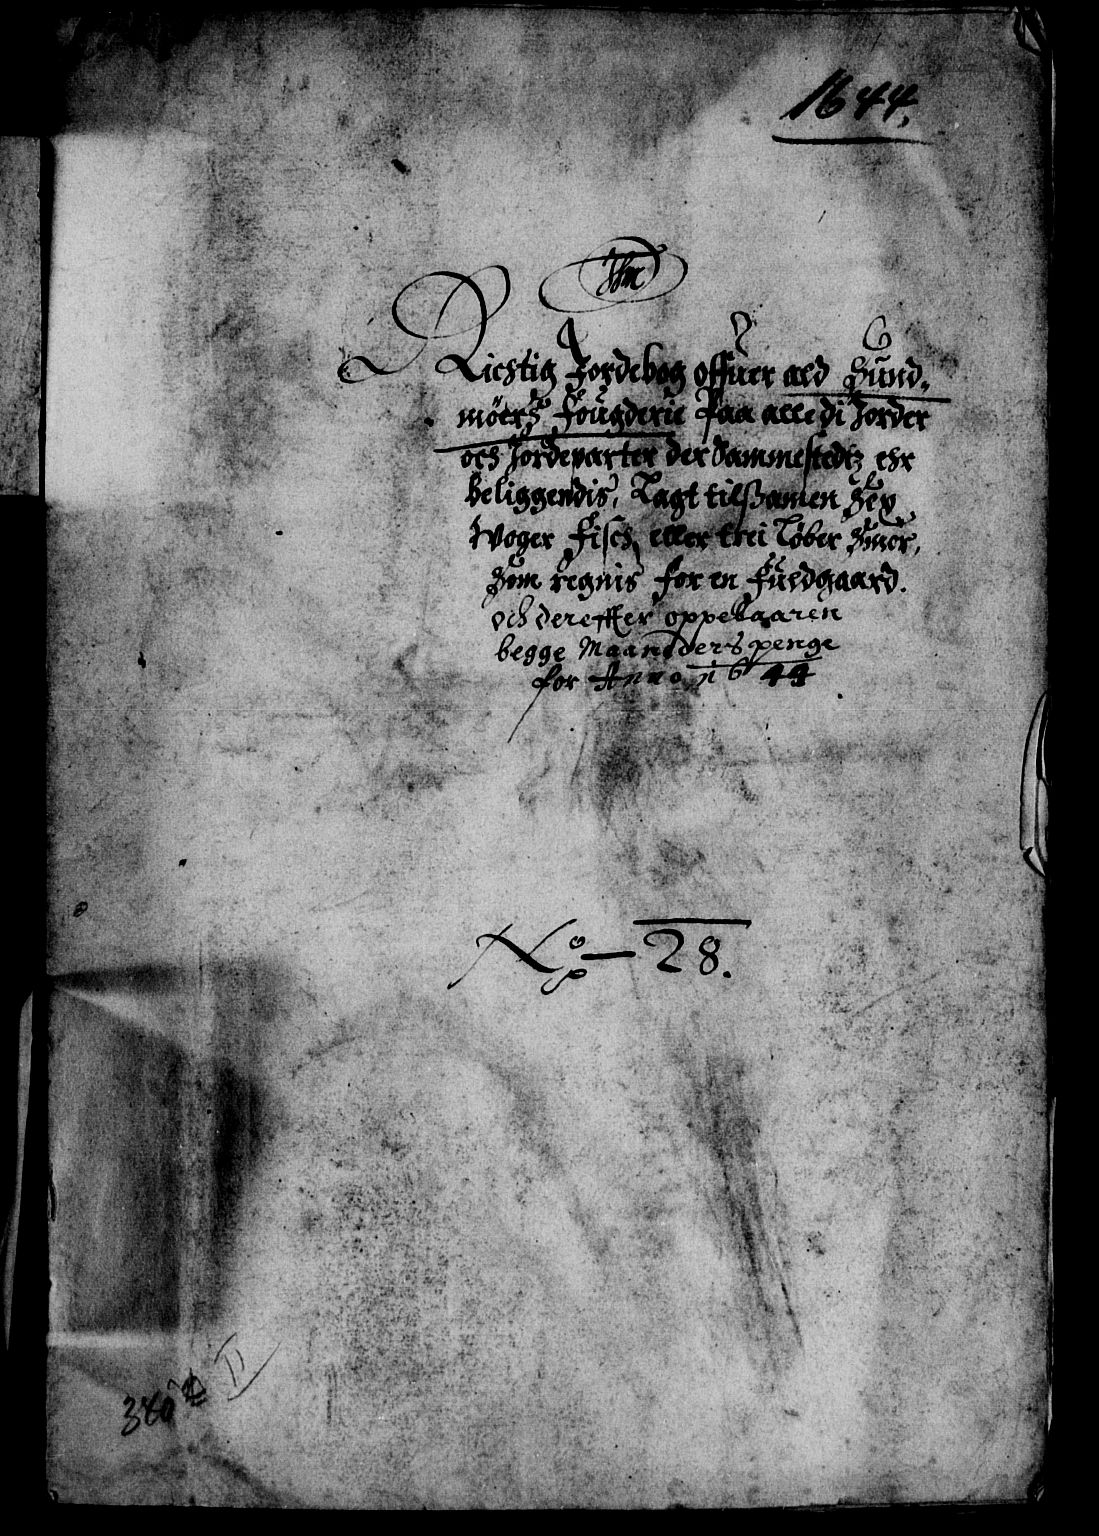 1644.
Richtig Jordebog offuer ald Sund-
möers Fougderie Paa alle di Jorder
och Jordeparter der sammestedtz ehr
beliggendis, Lagt tilsamen Sex
Woger Fisch, eller trei Løber Smør,
Som regnis for en Fuldgaard.
och dereffter oppebaaren
begge Maanderspenge
for Anno 1644
No - 28.